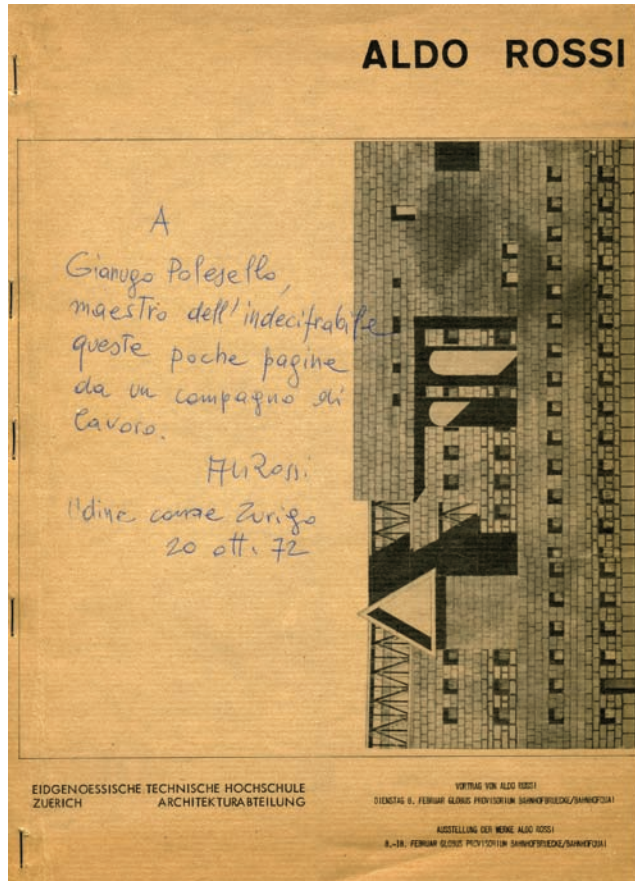 ALDO ROSSI
A
Gianugo Polesello,
maestro dell'indecifrabile
queste poche pagine
da un compagno di
lavoro.
Rossi
Udine come Zurigo
20 ott. 72
EIDGENOESSISCHE TECHNISCHE HOCHSCHULE
ZUERICH ARCHITEKTURABTEILUNG
VORTRAG VON ALDO ROSSI
DIENSTAG 8. FEBRUAR GLOBUS PROVISORIUM BAHNHOFBRUECKE/BAHNHOFQUAI
AUSSTELLUNG DER WERKE ALDO ROSSI
8.-18. FEBRUAR GLOBUS PROVISORIUM BAHNHOFBRUECKE/BAHNHOFQUAI